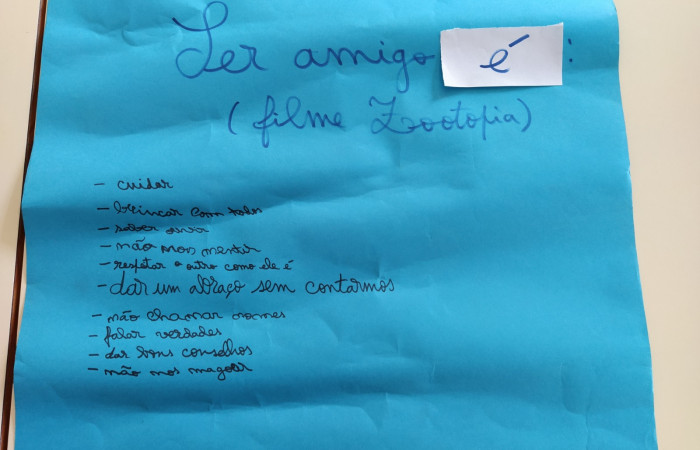 Ser amigo é:
(filme Zootopia)
- cuidar
- brincar com todos
- saber ouvir
- não nos mentir
- respeitar o outro como ele é
- dar um abraço sem contarmos
- não chamar nomes
- falar verdades
- dar bons conselhos
- não nos magoar